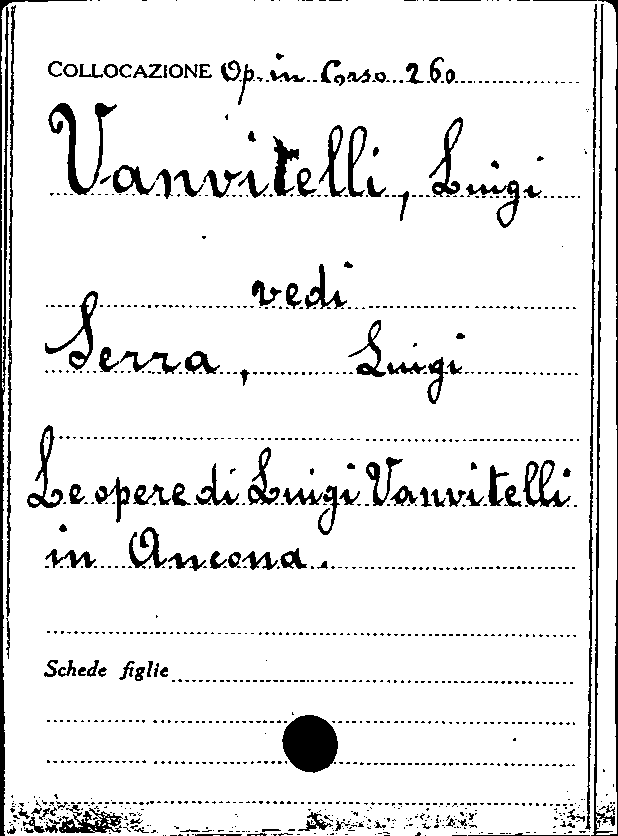 COLLOCAZIONE Op. in Corso 260
Vanvitelli, Luigi
vedi
Serra, Luigi
Le opere di Luigi Vanvitelli
in Ancona.
Schede figlie